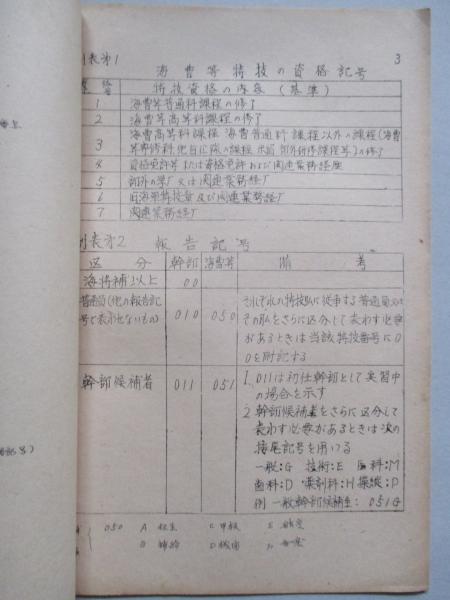 別表第1
3
海曹等特技の資格記号
記号 特技資格の内容(基準)
1 海曹等普通科課程の修了
2 海曹等高等科課程の修了
3 海曹高等科課程 海曹普通科課程以外の課程(海曹
の修了
4 資格免許等または資格免許および関連業務経歴
5 部外の学 又は関連業務経
6 旧海軍特技章及び関連業務経
7 関連業務経
別表第2 報告記号
区分 幹部 海曹等 備考
海将補以上 00
普通員(他の報告記
号で表わせないもの) 010 050
それぞれの特技職に従事する普通員
その をさらに区分して表わす必要
があるときは当該特技番号に0
0を附記する
幹部候補者 011 051
1. 011は初任幹部として実習中
の場合を示す
2 幹部候補者をさらに区分して
表わす必要があるときは次の
接尾記号を用いる
一般:G 技術:E 医科:M
歯科:D 薬剤科:H 操縦:P
例 一般幹部候補生:051G
050 A C 甲板 E
B 補給 D